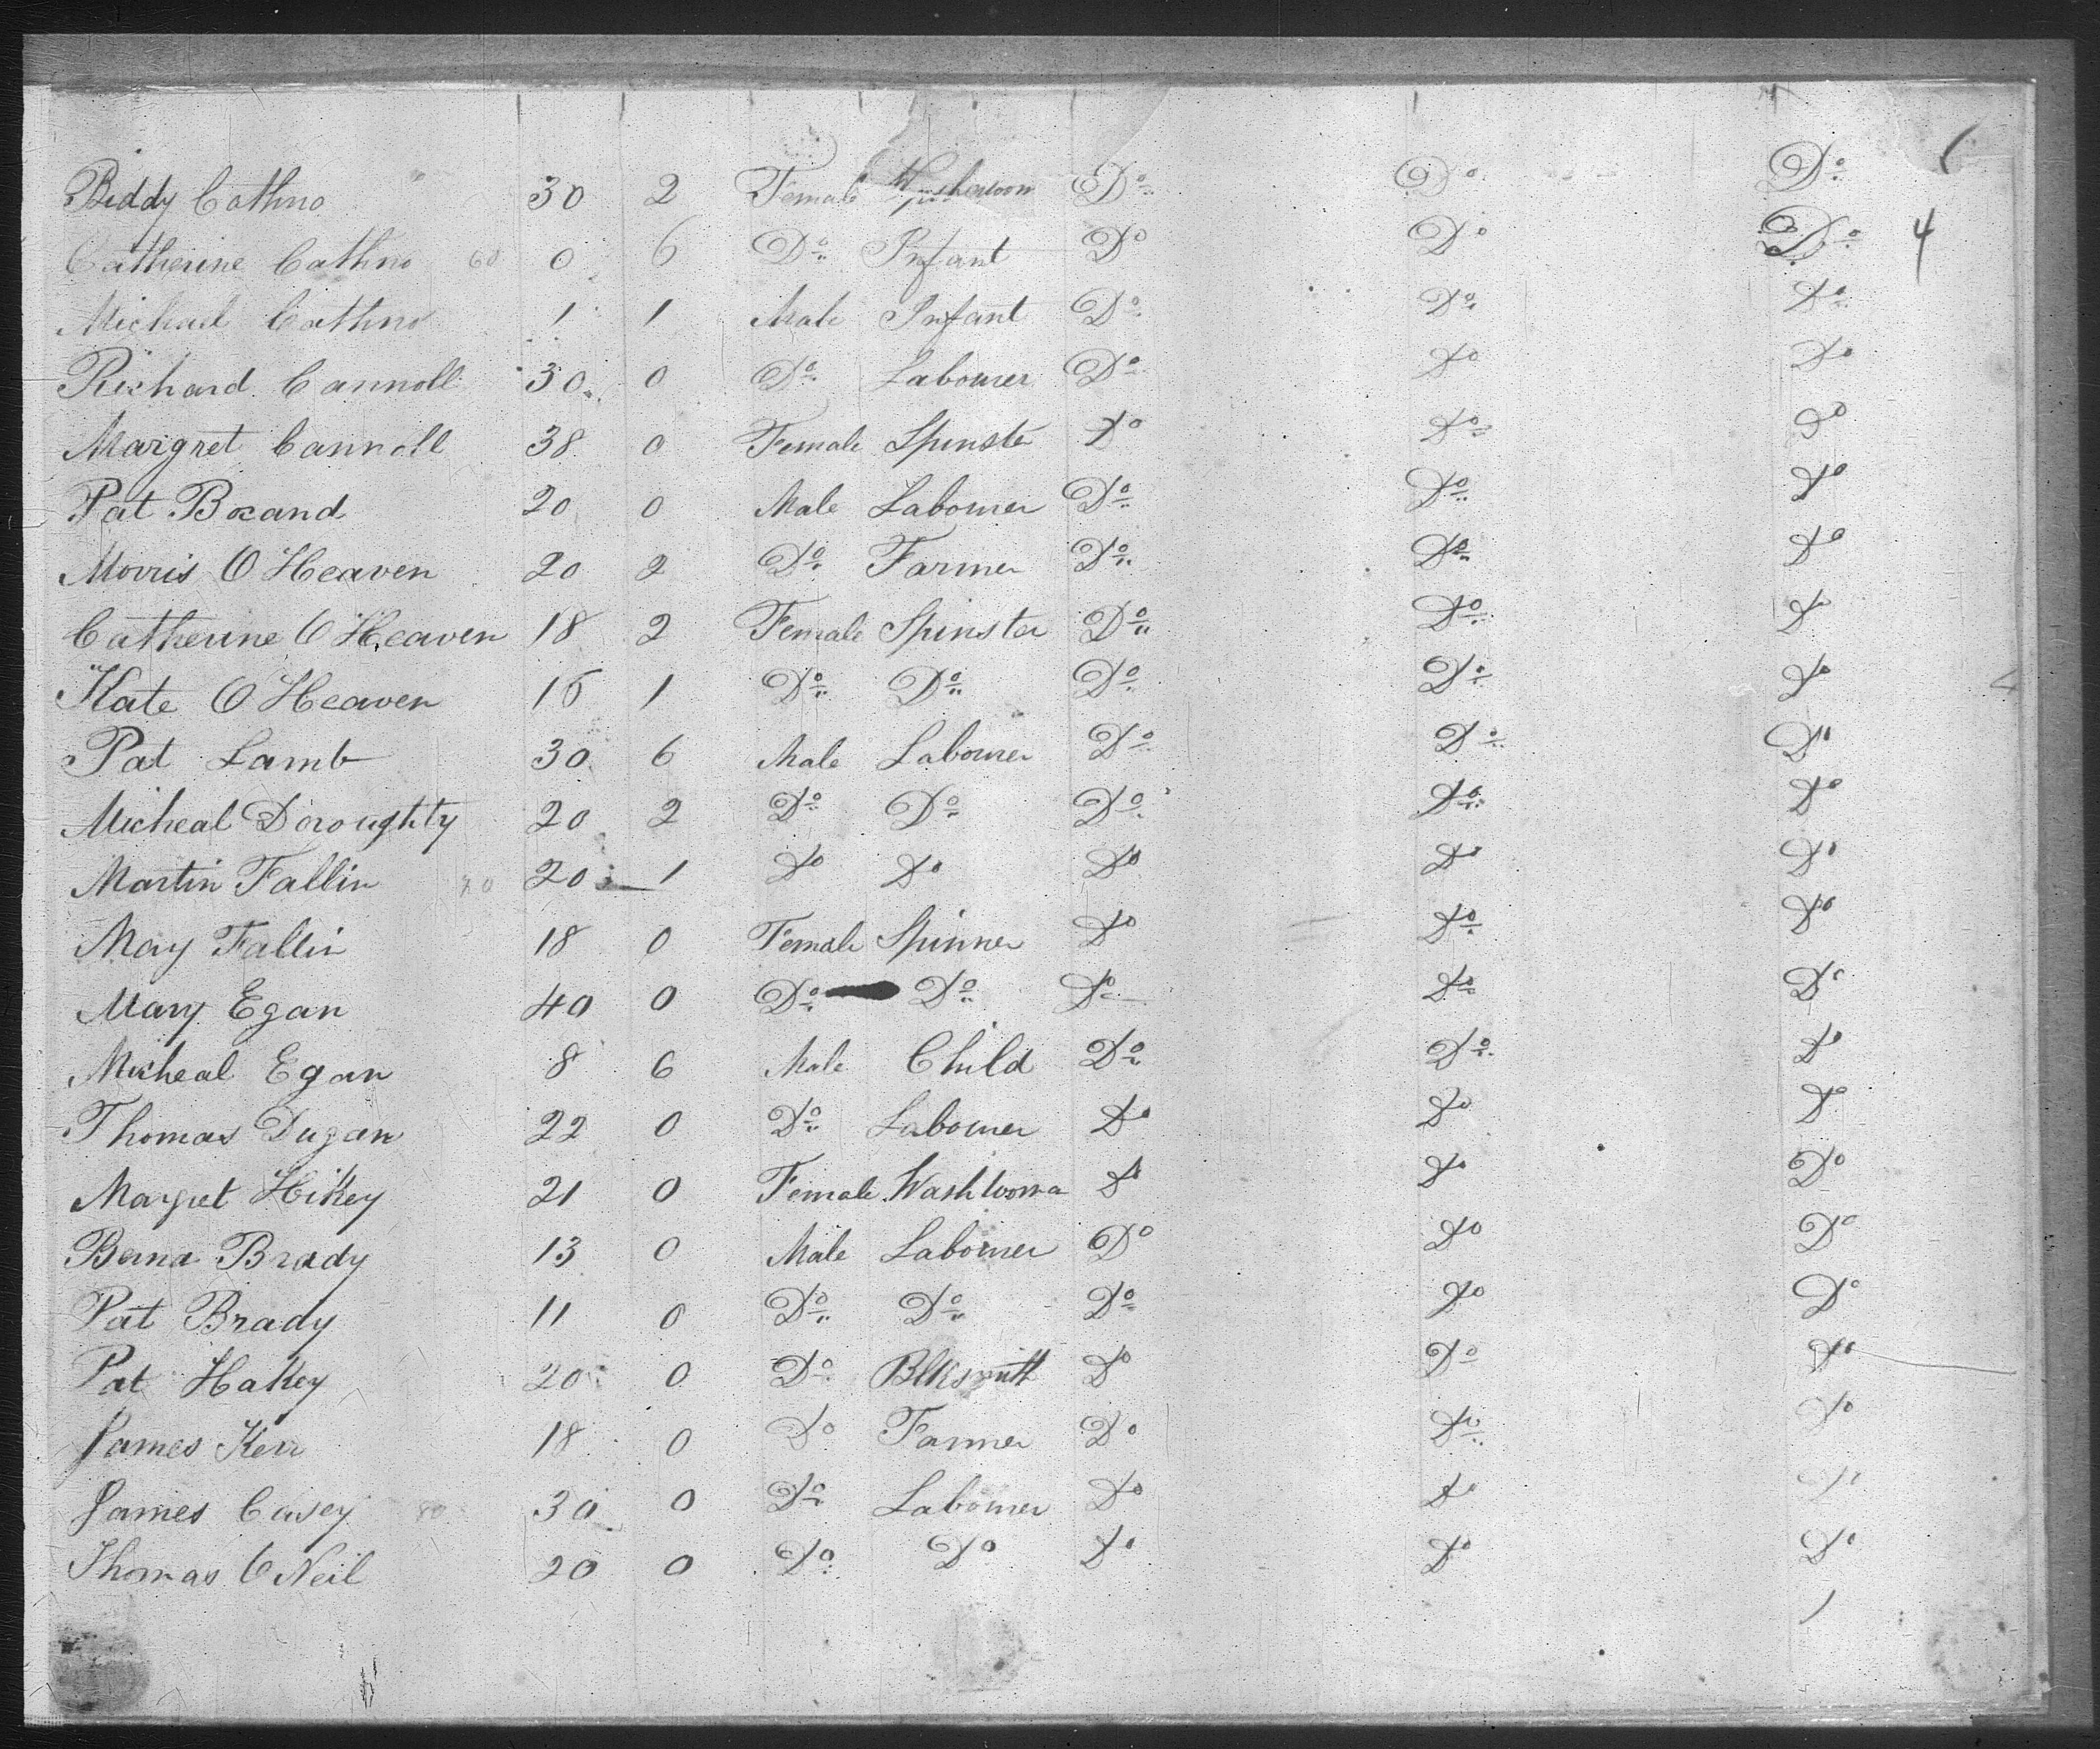 Biddy Cathno 30 2 Female Washerwom Do Do Do
Catherine Cathno 60 0 6 Do Infant Do Do Do 4
Micheal Cathno 1 1 Male Infant Do Do Do
Richard Cannoll 30 0 Do Labourer Do Do Do
Margret Cannoll 38 0 Female Spinste Do Do Do
Pat 20 0 Male Labourer Do Do Do
Morris O Heaven 20 2 Do Farmer Do Do Do
Catherine O Heaven 18 2 Female Spinster Do Do Do
Kate O Heaven 16 1 Do Do Do Do Do
Pat Lamb 30 6 Male Labourer Do Do Do
Micheal Doroughty 20 2 Do Do Do Do Do
Martin Fallin 70 20 1 Do Do Do Do Do
May Fallin 18 0 Female Spinner Do Do Do
Mary Egan 40 0 Do Do Do Do Do
Micheal Egan 8 6 Male Child Do Do Do
Thomas Dugan 22 0 Do Labourer Do Do Do
Margret Hikey 21 0 Female Washwoma Do Do Do
Berna Brady 13 0 Male Labourer Do Do Do
Pat Brady 11 0 Do Do Do Do Do
Pat Hakey 20 0 Do Blksmith Do Do Do
James Kerr 18 0 Do Farmer Do Do Do
James Casey 80 30 0 Do Labourer Do Do Do
Thomas O Neil 20 0 Do Do Do Do Do